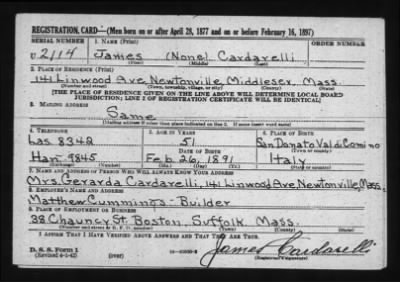 REGISTRATION CARD—(Men born on or after April 28, 1877 and on or before February 16, 1897)
SERIAL NUMBER 1. NAME (Print) ORDER NUMBER
U 2114 James (None) Cardarelli
(First) (Middle) (Last)
2. PLACE OF RESIDENCE (Print)
141 Linwood Ave Newtonville, Middlesex, Mass.
(Number and street) (Town, township, village, or city) (County) (State)
[THE PLACE OF RESIDENCE GIVEN ON THE LINE ABOVE WILL DETERMINE LOCAL BOARD
JURISDICTION; LINE 2 OF REGISTRATION CERTIFICATE WILL BE IDENTICAL]
3. MAILING ADDRESS
Same
[Mailing address if other than place indicated on line 2. If same insert word same]
4. TELEPHONE 5. AGE IN YEARS 6. PLACE OF BIRTH
Las 8342 51 San Donato Val di Comino
DATE OF BIRTH
Han 9845 Feb. 26, 1891 Italy
7. NAME AND ADDRESS OF PERSON WHO WILL ALWAYS KNOW YOUR ADDRESS
Mrs. Gerarda Cardarelli, 141 Linwood Ave, Newtonville, Mass.
8. EMPLOYER'S NAME AND ADDRESS
Matthew Cummings - Builder
9. PLACE OF EMPLOYMENT OR BUSINESS
38 Chauncy St. Boston, Suffolk Mass.
(Number and street or R. F. D. number) (Town) (County) (State)
I AFFIRM THAT I HAVE VERIFIED ABOVE ANSWERS AND THAT THEY ARE TRUE.
D. S. S. Form 1
(Revised 4-1-42) (over)
James Cardarelli
(Registrant's signature)